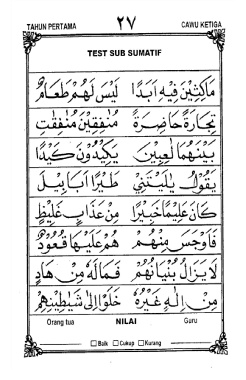 TAHUN PERTAMA ٢٧ CAWU KETIGA
TEST SUB SUMATIF
مَاكِثِيْنَ فِيْهِ اَبَدًا لَيْسَ لَهُمْ طَعَامٌ
تِجَارَةً حَاضِرَةً مُنٰفِقِيْنَ مُنٰفِقٰتِ
بَيْنَهُمَا لٰعِبِيْنَ يَكِيْدُوْنَ كَيْدًا
يَقُوْلُ يٰلَيْتَنِيْ طَيْرًا اَبَابِيْلَ
كَانَ عَلِيْمًا خَبِيْرًا مِنْ عَذَابٍ غَلِيْظٍ
فَاَوْجَسَ مِنْهُمْ هُمْ عَلَيْهَا قُعُوْدٌ
لَا يَزَالُ بُنْيَانُهُمْ فَمَا لَهٗ مِنْ هَادٍ
مِنْ اِلٰهٍ غَيْرُهٗ خَلَوْا اِلٰى شَيٰطِيْنِهِمْ
Orang tua NILAI Guru
□ Baik □ Cukup □ Kurang